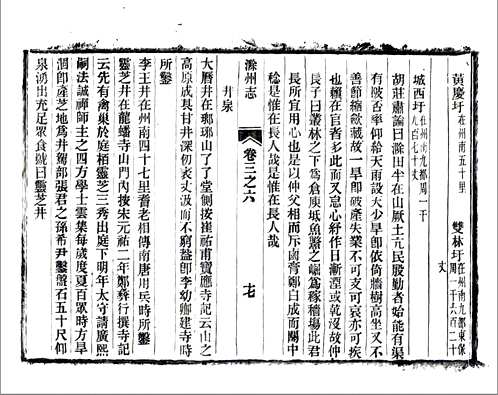 黃慶圩在州南五十里　雙林圩在州南九都東保周一千六百二十丈
城西圩在州南九都周一千九百七十丈
胡莊肅論曰滁田半在山厥土亢民殷勤者始能有渠
有陂否率仰給天雨設天少旱卽依倚牆樹高坐又不
善節縮歛藏故一旱卽破產失業不可支可哀亦可疾
也賴在官者多此而又怠心紓作日漸湮或乾沒故仲
長子曰叢林之下為倉庾坻魚鱉之崛為稼穡場此君
長所宜用心也是以仲父相而斥鹵膏鄭白成而關中
稔是惟在長人哉是惟在長人哉
滁州志　卷三之六　十七
井泉
大曆井在瑯琊山了了堂側按崔祐甫寶應寺記云山之
高原成其甘井深初袤丈汲而不窮蓋卽李幼卿建寺時
所鑿
李王井在州南四十七里耆老相傳南唐用兵時所鑿
靈芝井在龍蟠寺山門內按宋元祐二年鄭彝行撰寺記
云先有禽巢於庭栢靈芝三秀出庭下明年太守請廣熙
嗣法誠禪師主之四方學士雲集每歲度夏百眾時方旱
涸卽產芝地為井部張君之孫希尹鑿盤石五十尺仰
泉湧出充足眾食號曰靈芝井